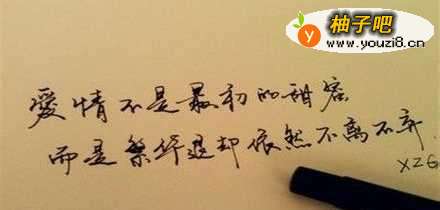 柚子吧
www.youzi8.cn
愛情不是最初的甜蜜
而是繁华退却依然不离不弃
XZG